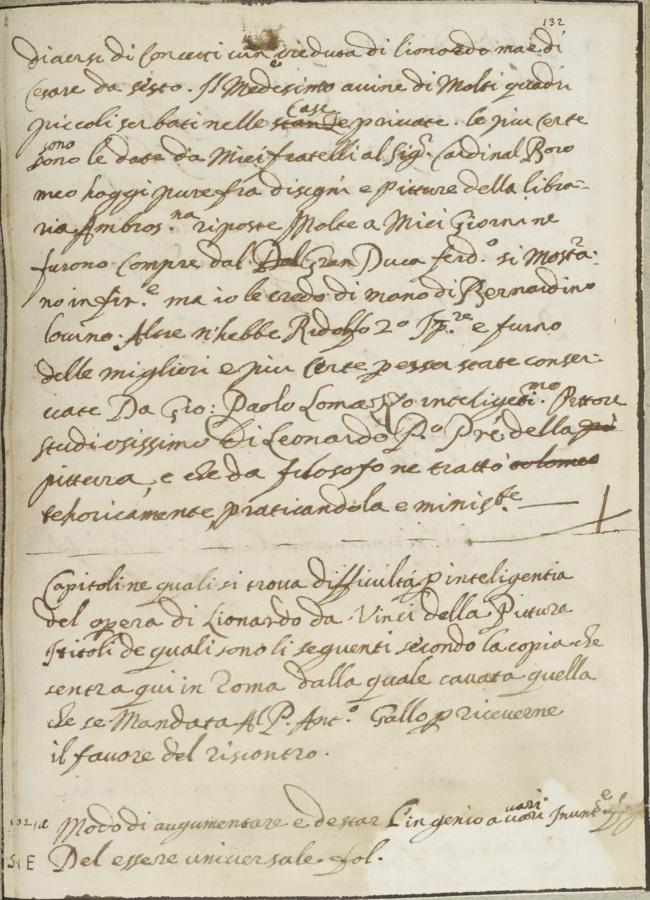 132
diversi di Concetti vien creduta di lionardo ma è di
Cesare da sesto. Il Medesimo avine di Molti quadri
piccoli serbati nelle stanze Case private. le piu Certe
sono sono le date da Miei fratelli al Sig.r Cardinal Boro
meo hoggi pure fra disegni e pitture della libra-
ria Ambros.na riposte Molte a Miei Giorni ne
furono Compre dal Dal Gran Duca ferd.o si Mostra-
no in fir.e ma io le credo di mano di Bernardino
lovino. Altre n'hebbe Ridolfo 2o Imp.re e furno
delle migliori e piu Certe per esser state conser-
vate Da Gio: Paolo Lomazzo inteligeti.mo Pittore
studiosissimo di Leonardo P.o Pre della
pittura, e che da filosofo ne trattò
tehoricamente praticandola e
Capitoli ne quali si trova difficultà p inteligentia
del opera di Lionardo da Vinci della Pittura
I titoli de quali sono li seguenti secondo la copia che
sentra qui in Roma dalla quale cavata quella
che se Mandata Al P. Ant.o Gallo p riceverne
il favore del riscontro.
Modo di augumentare e destar l'ingenio a varii varii
Del essere universale. fol.